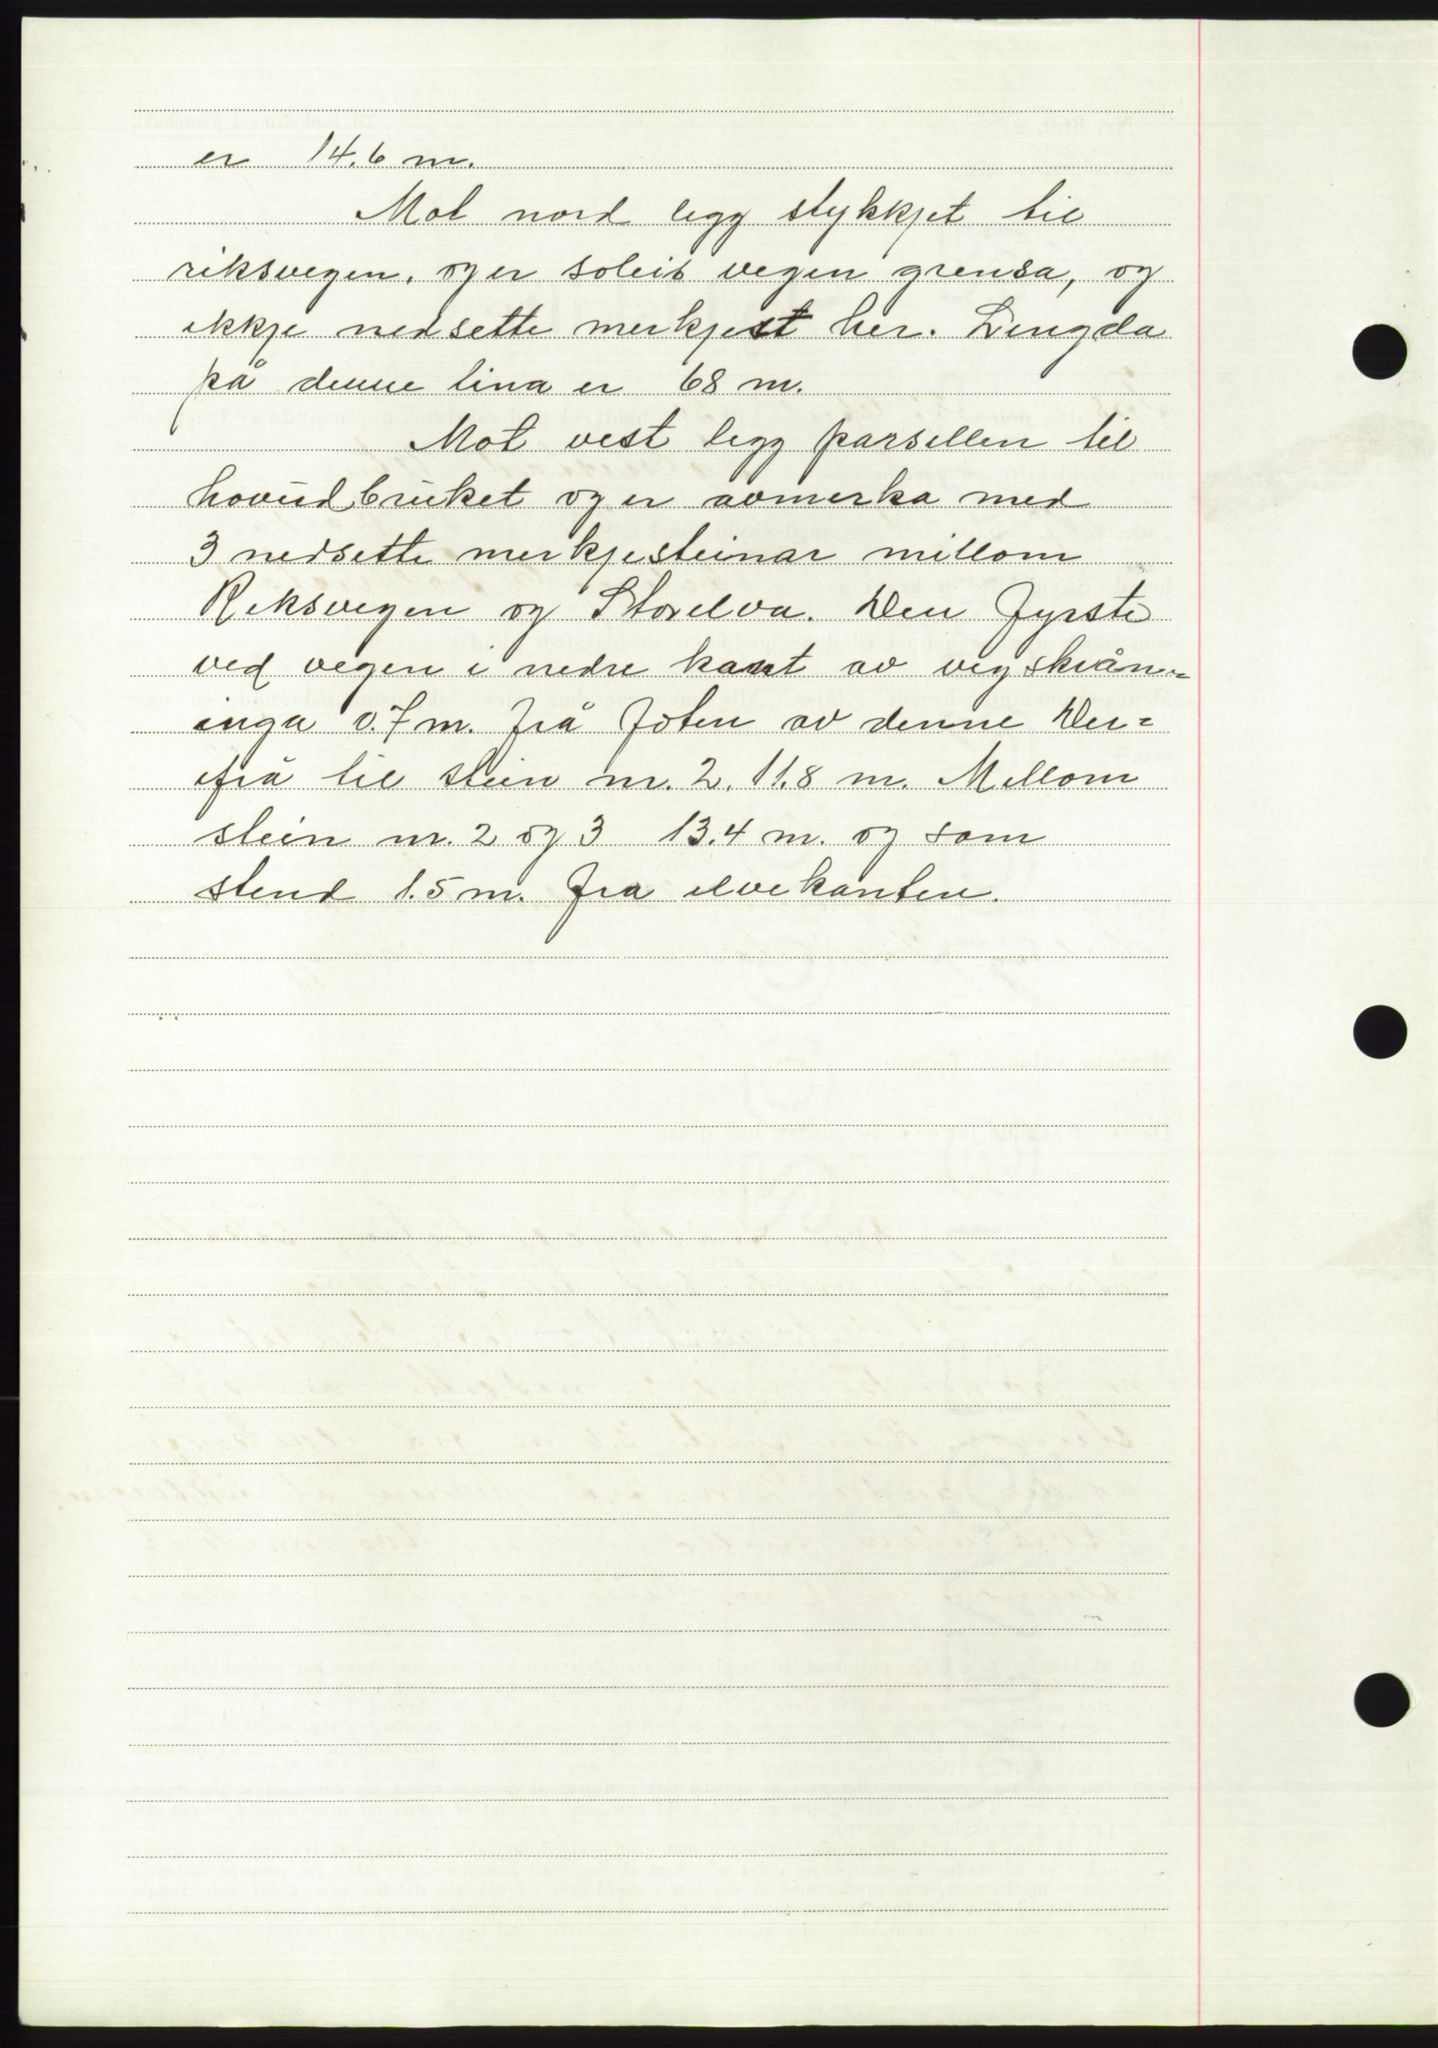 er 14.6 m.
Mot nord legg stykkjet til
riksvegen, og er soleis vegen grensa, og
ikkje nedsette merkjest her. Lengda
på denne lina er 68 m.
Mot vest legg parsellen til
hovudbruket og er avmerka med
3 nedsette merkjesteinar millom
Riksvegen og Storelva. Den fyrste
ved vegen i nedre kant av vegskrån-
inga 0.7 m. frå foten av denne Der=
ifrå til stein nr. 2. 11.8 m. Millom
stein nr. 2 og 3 13.4 m. og som
stend 1.5 m. fra elvekanten.